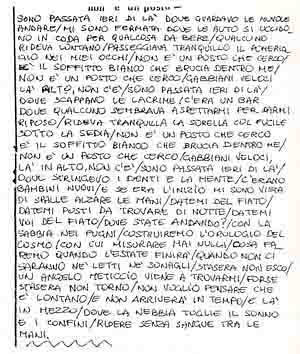 non è un posto
SONO PASSATA IERI DI LA' DOVE GUARDAVO LE NUVOLE
ANDARE/MI SONO FERMATA DOVE LE AUTO SI UCCIDO
NO IN CODA PER QUALCOSA DA BERE/QUALCUNO
RIDEVA LONTANO/PASSEGGIAVA TRANQUILLO IL POMERIG
GIO NEI MIEI OCCHI/NON E' UN POSTO CHE CERCO/
E' IL SOFFITTO BIANCO CHE BRUCIA DENTRO ME/
NON E' UN POSTO CHE CERCO/GABBIANI VELOCI
LA' ALTO, NON C'E'/SONO PASSATA IERI DI LA'/
DOVE SCAPPANO LE LACRIME/C'ERA UN BAR
DOVE QUALCUNO SEMBRAVA ASPETTARMI PER DARMI
RIPOSO/RIDEVA TRANQUILLA LA SORELLA COL FUCILE
SOTTO LA SEDIA/NON E' UN POSTO CHE CERCO
E' IL SOFFITTO BIANCO CHE BRUCIA DENTRO ME/
NON E' UN POSTO CHE CERCO/GABBIANI VELOCI,
LA' IN ALTO, NON C'E'/SONO PASSATA IERI DI LA'/
DOVE I DENTI E LA MENTE/C'ERANO
BAMBINI NUOVI/E SE ERA L'INIZIO MI SONO VISTA
DI SPALLE ALZARE LE MANI/DATEMI DEL FIATO/
DATEMI POSTI DA TROVARE DI NOTTE/DATEMI
VOI DEL FIATO/DOVE STATE ANDANDO/CON LA
SABBIA NEI PUGNI/COSTRUIREMO L'OROLOGIO DEL
COSMO/CON CUI MISURARE MAI NULLI/COSA FA
REMO QUANDO L'ESTATE FINIRA'/QUANDO NON CI
SARANNO NE' LETTI NE' SONAGLI/STASERA NON ESCO/
UN ANGELO METICCIO VIENE A TROVARMI/FORSE
STASERA NON TORNO/NON VOGLIO PENSARE CHE
E' LONTANO/E NON ARRIVERA' IN TEMPO/E LA'
IN MEZZO/DOVE LA NEBBIA TOGLIE IL SONNO
E I CONFINI/RIDERE SENZA SANGUE TRA LE
MANI.